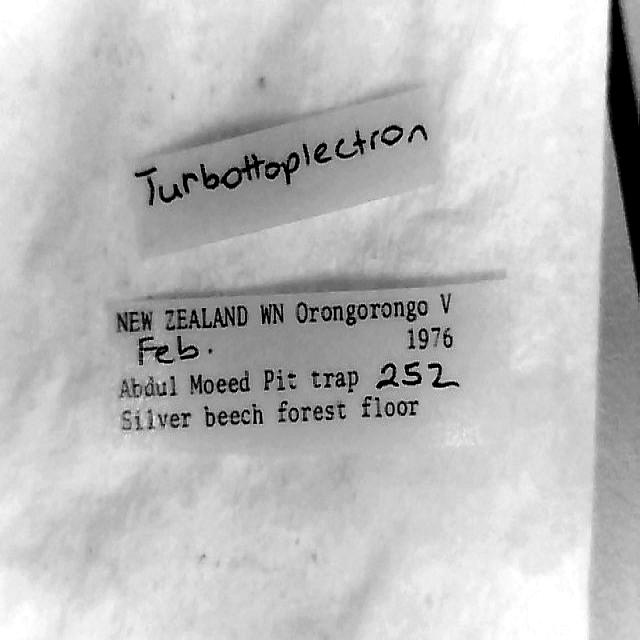 Turbottoplectron
NEW ZEALAND WN Orongorongo V
Feb. 1976
Abdul Moeed Pit trap 252
Silver beech forest floor